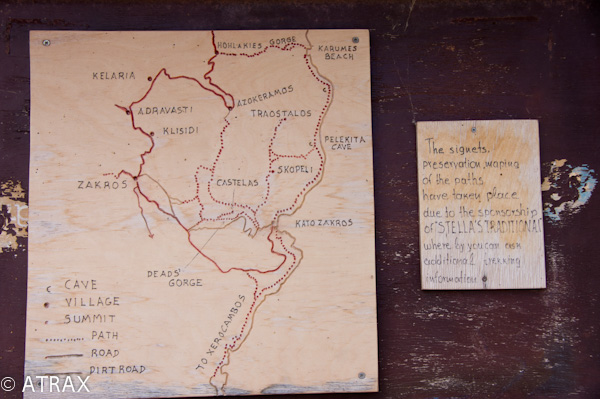 HOHLAKIES GORGE
KARUMES
BEACH
KELARIA
AZOKERAMOS
ADRAVASTI
TRAOSTALOS
KLISIDI
PELEKITA
CAVE
SKOPELI
ZAKROS
CASTELAS
KATO ZAKROS
DEADS'
GORGE
TO XEROCAMBOS
CAVE
VILLAGE
SUMMIT
PATH
ROAD
DIRT ROAD
The signets,
preservation, maping
of the paths
have taken place
due to the sponsorship
of "STELLA'S TRADITIONAL"
where by you can
additional trekking
information
© ATRAX